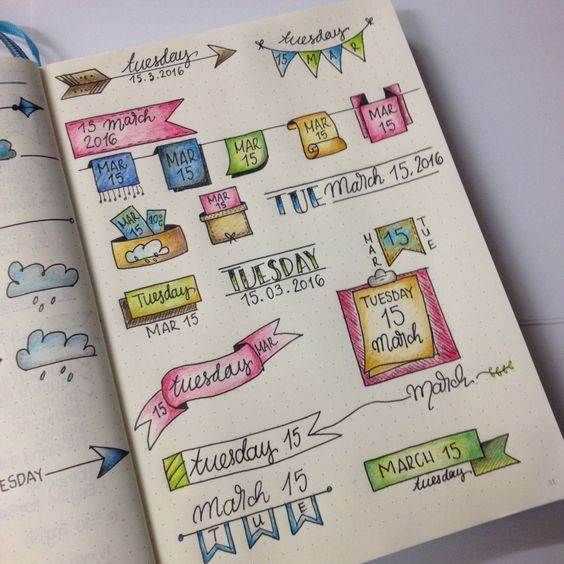 tuesday
15.3.2016
tuesday
15 MAR
15 March
2016
MAR
15
MAR
15
MAR
15
MAR
15
MAR
15
MAR
15
MAR
15
TUE March 15. 2016
MAR
15
TUE
TUESDAY
15.03.2016
Tuesday
MAR 15
TUESDAY
15
March
15 tuesday MAR
March
tuesday 15
MARCH 15
tuesday
March 15
TUE
ESDAY